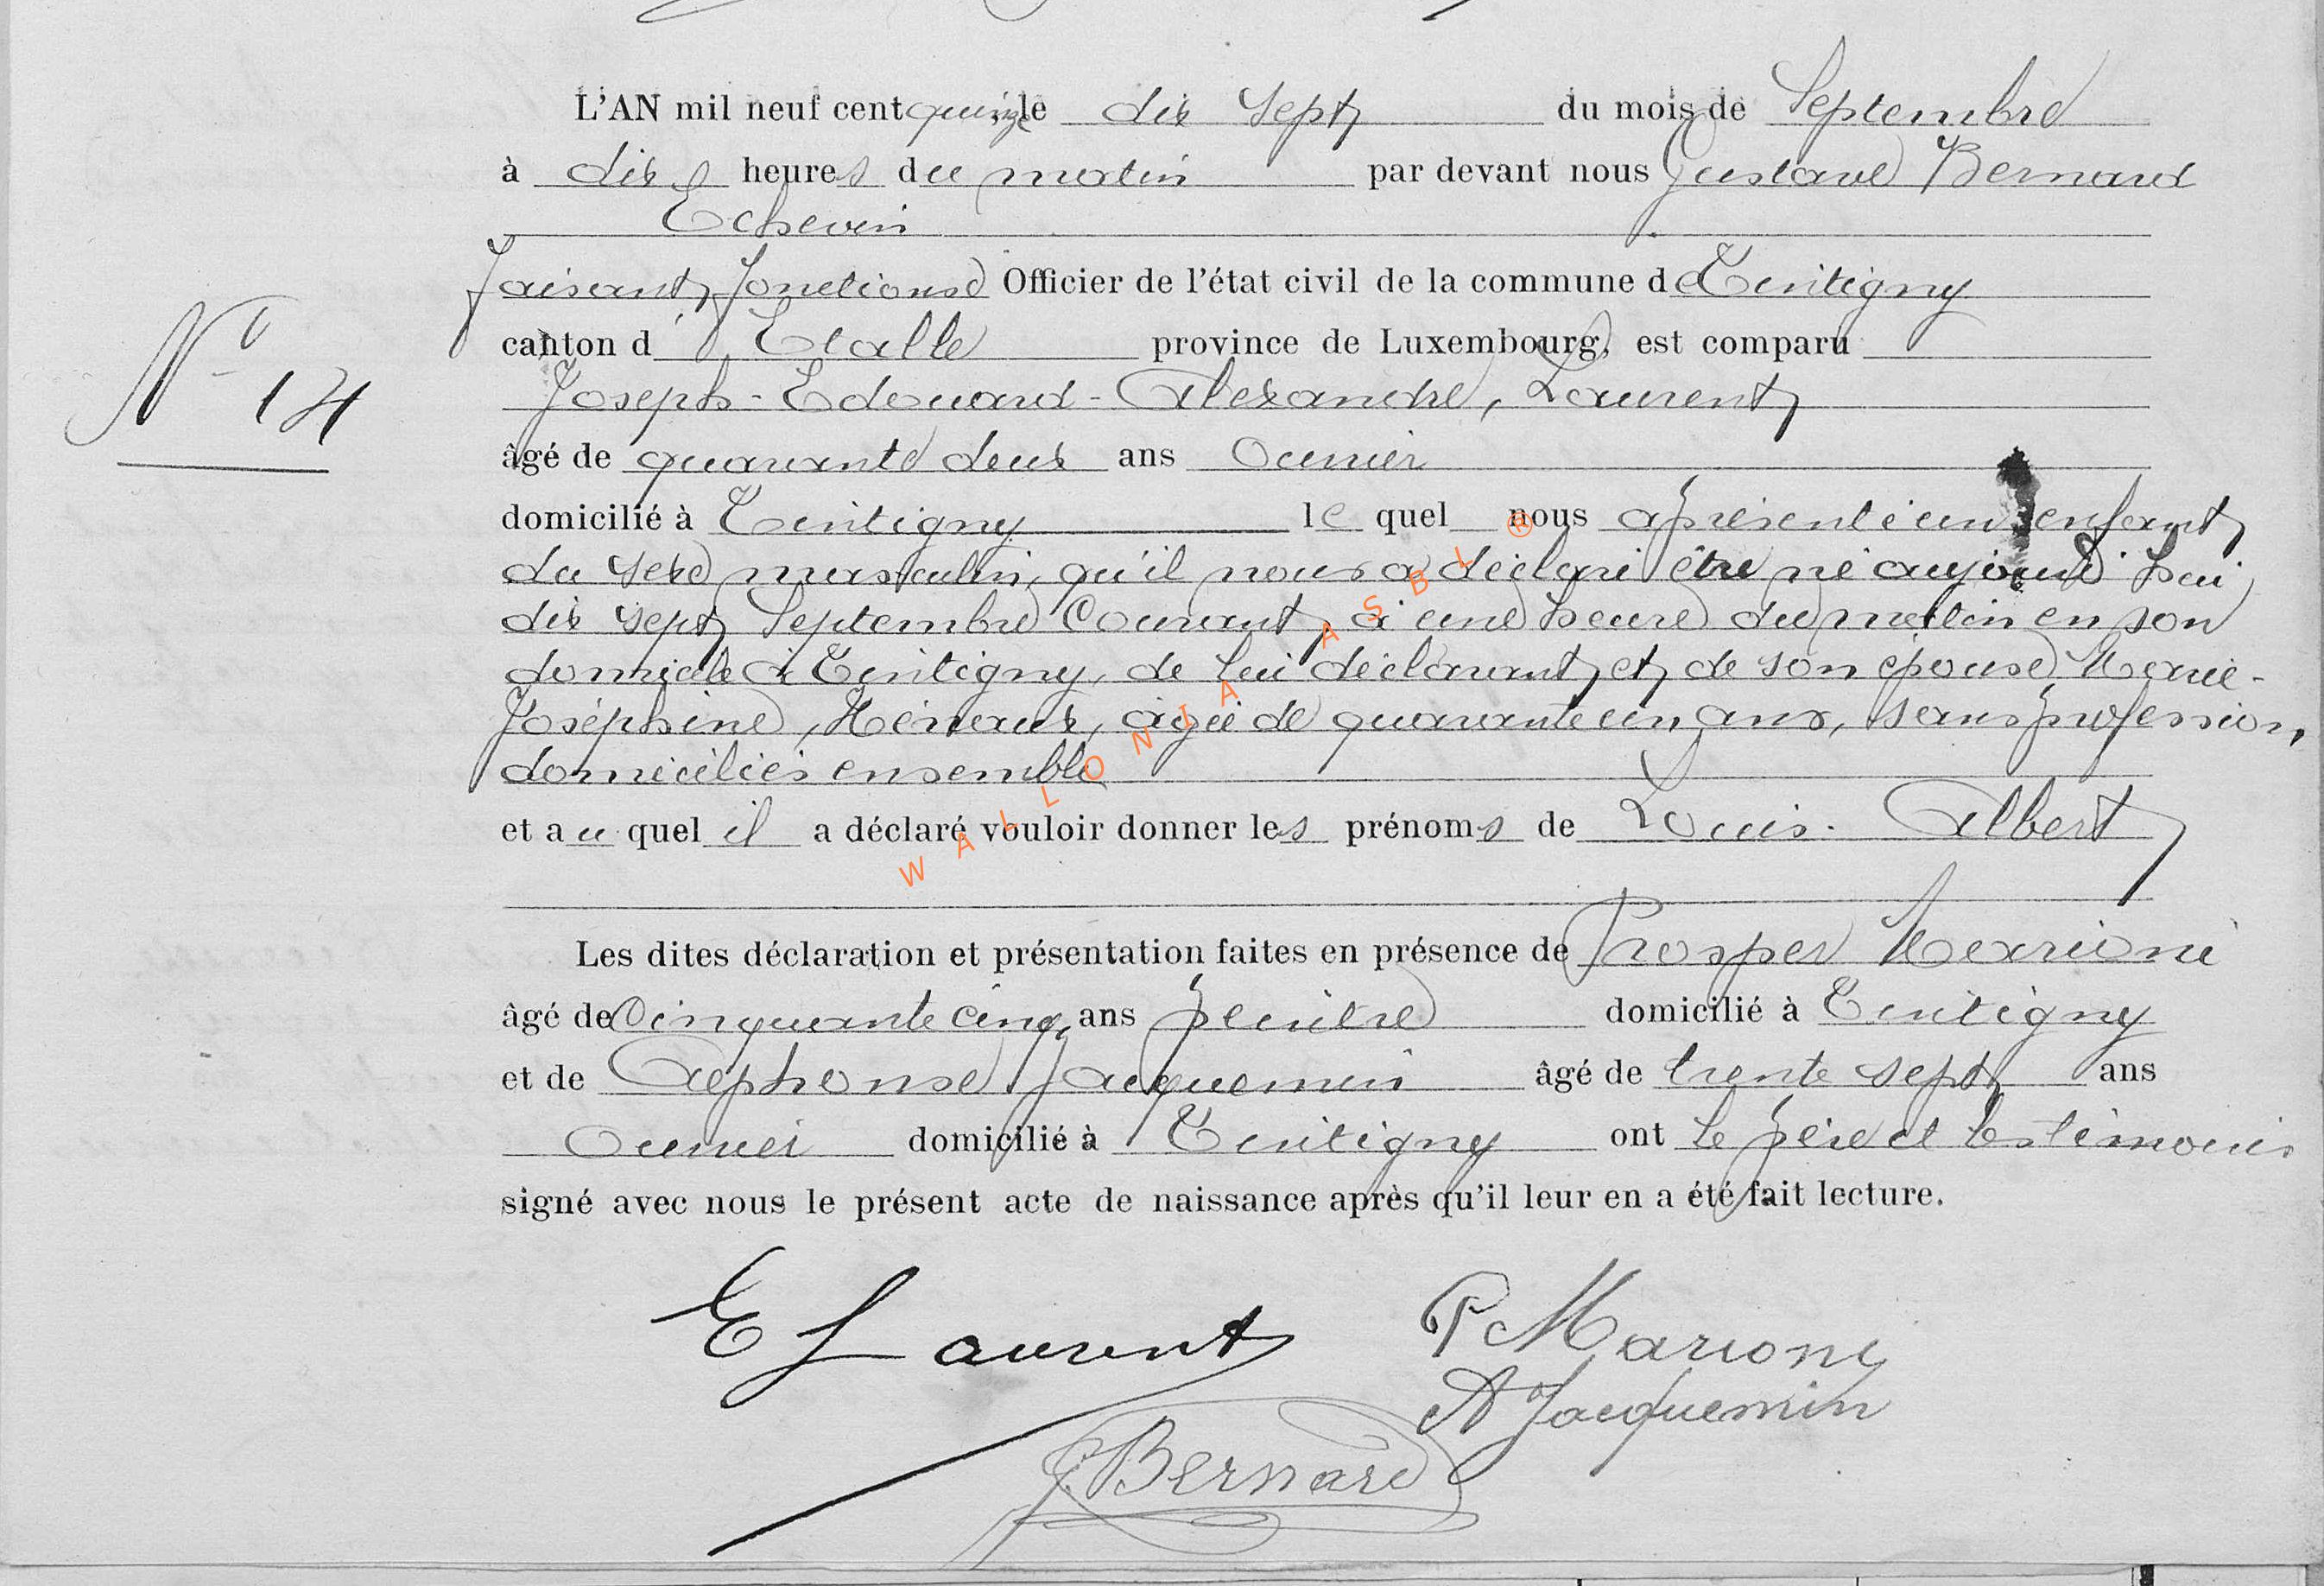 L'AN mil neuf cent quinze le dix sept du mois de Septembre
à dix heures du matin par devant nous Gustave Bernard
Echevin
faisant fonctions d Officier de l'état civil de la commune de Tintigny
canton d' Etalle province de Luxembourg, est comparu
N° 14
Joseph-Edouard-Alexandre, Laurent
âgé de quarante deux ans Ouvrier
domicilié à Tintigny le quel nous a présenté un enfant
du sexe masculin, qu'il nous a déclaré être né aujourd'hui
dix sept Septembre Courant, à une heure du matin en son
domicile à Tintigny, de lui déclarant et de son épouse Marie-
Joséphine, agée de quarante un ans, sans profession,
domiciliés ensemble
et au quel il a déclaré vouloir donner les prénoms de Louis-Albert
Les dites déclaration et présentation faites en présence de Prosper Marioni
âgé de Cinquante cinq ans peintre domicilié à Tintigny
et de Alphonse Jacquemin âgé de trente sept ans
Ouvrier domicilié à Tintigny ont le père et les témoins
signé avec nous le présent acte de naissance après qu'il leur en a été fait lecture.
E Laurent P Marioni
A Jacquemin
G. Bernard
WALLONIA ASBL ®